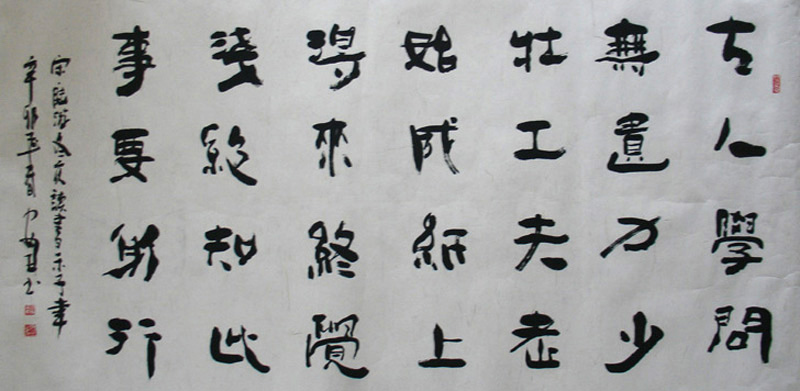 古人學問
無遺力少
壯工夫老
始成紙上
得來終覺
淺絕知此
事要躬行
宋陸游冬夜讀書示子聿
辛卯年夏